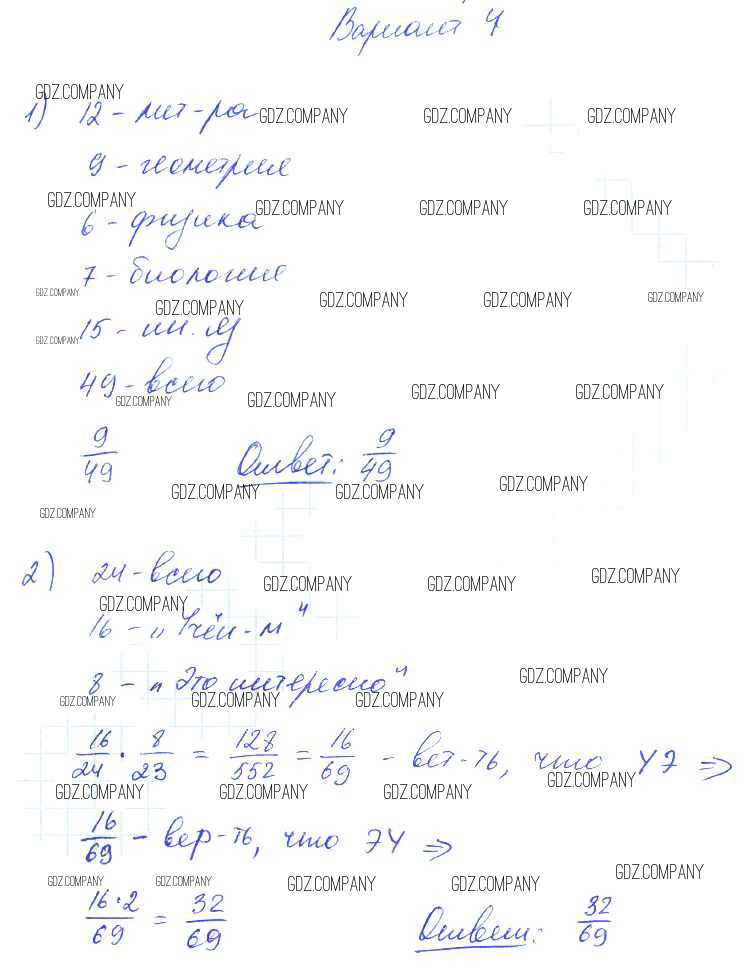 Вариант 4
GDZ.COMPANY
1) 12 - лит-ра
GDZ.COMPANY GDZ.COMPANY GDZ.COMPANY
9 - геометрия
GDZ.COMPANY GDZ.COMPANY GDZ.COMPANY GDZ.COMPANY
6 - физика
7 - биология
GDZ.COMPANY GDZ.COMPANY GDZ.COMPANY GDZ.COMPANY GDZ.COMPANY
15 - ин. яз
GDZ.COMPANY
49 - всего
GDZ.COMPANY GDZ.COMPANY GDZ.COMPANY GDZ.COMPANY
9/49 Ответ: 9/49
GDZ.COMPANY GDZ.COMPANY GDZ.COMPANY
GDZ.COMPANY
2) 24 - всего
GDZ.COMPANY GDZ.COMPANY GDZ.COMPANY
GDZ.COMPANY
16 - „Учён-м"
8 - „Это интересно"
GDZ.COMPANY
GDZ.COMPANY GDZ.COMPANY GDZ.COMPANY
16/24 · 8/23 = 128/552 = 16/69 - вет-ть, что УЭ ⇒
GDZ.COMPANY GDZ.COMPANY GDZ.COMPANY GDZ.COMPANY
16/69 - вер-ть, что ЭУ ⇒
GDZ.COMPANY GDZ.COMPANY GDZ.COMPANY GDZ.COMPANY GDZ.COMPANY
16·2/69 = 32/69 Ответ: 32/69